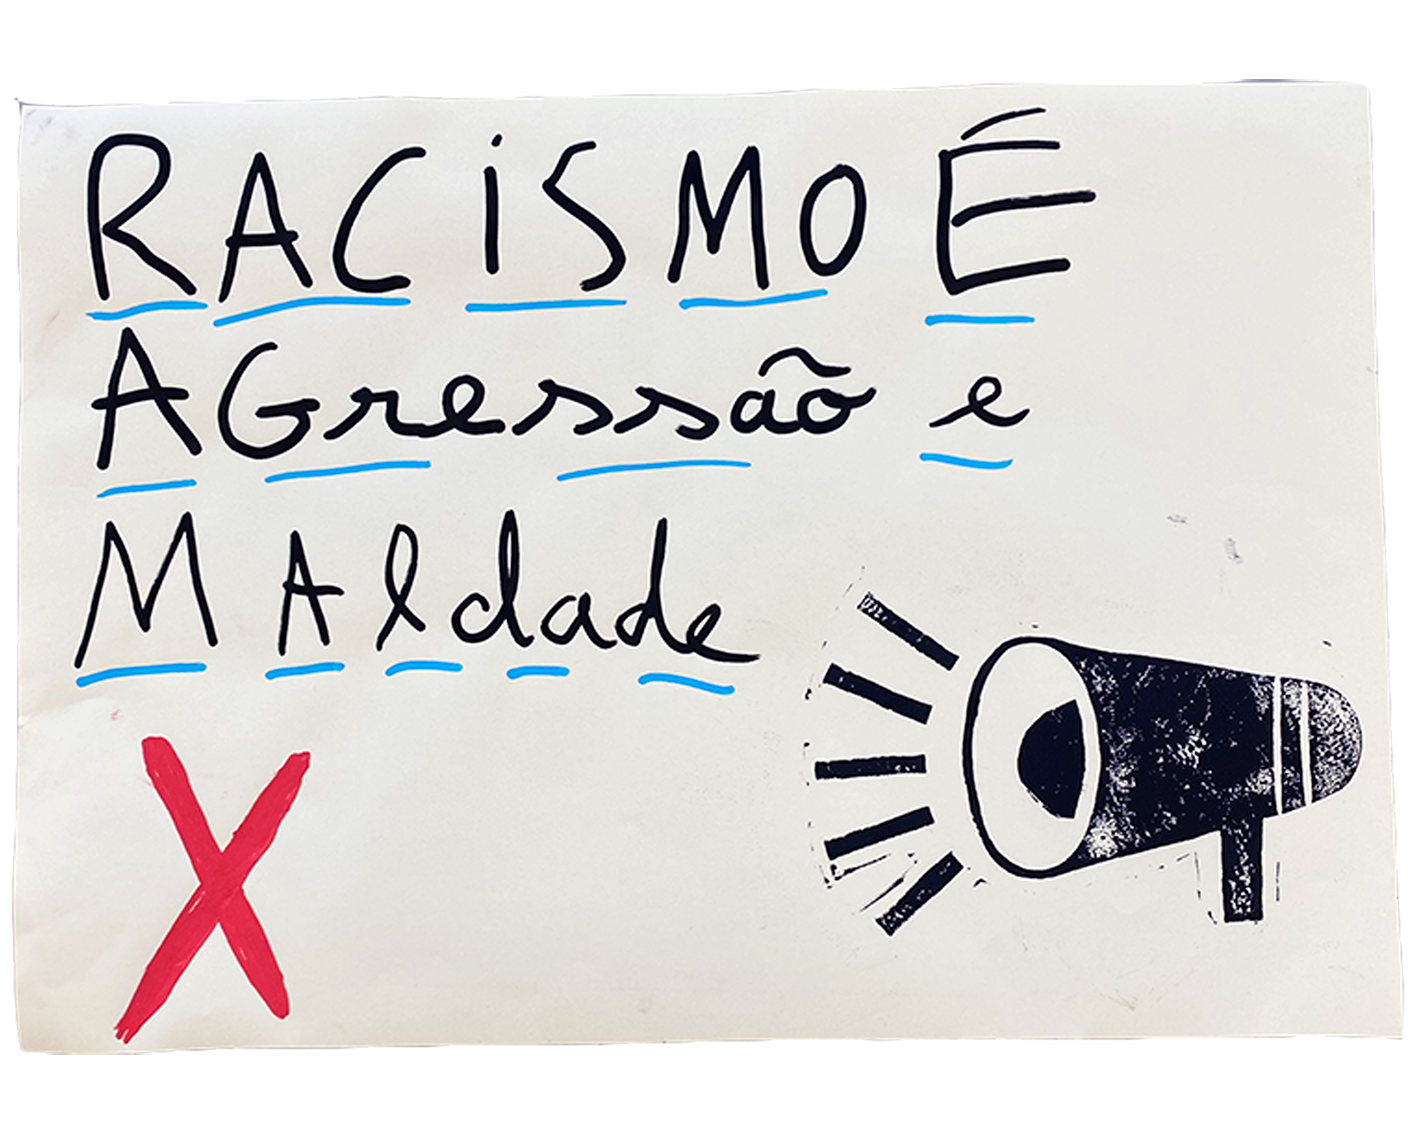 RACiSMO É
AGressão e
MAldade
X